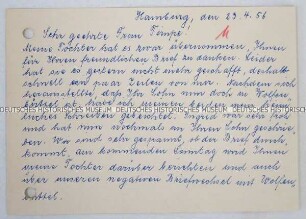 Hamburg, den 23.4.56
Sehr geehrte Frau Tempé!
Meine Tochter hat es zwar übernommen, Ihnen
für Ihren freundlichen Brief zu danken. Leider
hat sie es gestern nicht mehr geschafft, deshalb
schnell ein paar Zeilen von hier. Nachdem sich
herausstellte, daß Ihr Sohn nun doch in Wolfen-
büttel ist, habe ich keinen
liches Schreiben geschickt. Ingrid war sehr froh
und hat nun nochmals an Ihren Sohn geschrie-
ben. Wir sind sehr gespannt, ob der Brief durch-
kommt. Am kommenden Sonntag wird Ihnen
meine Tochter darüber berichten und auch
über unseren negativen Briefwechsel mit Wolfen
büttel.
DEUTSCHES HISTORISCHES MUSEUM